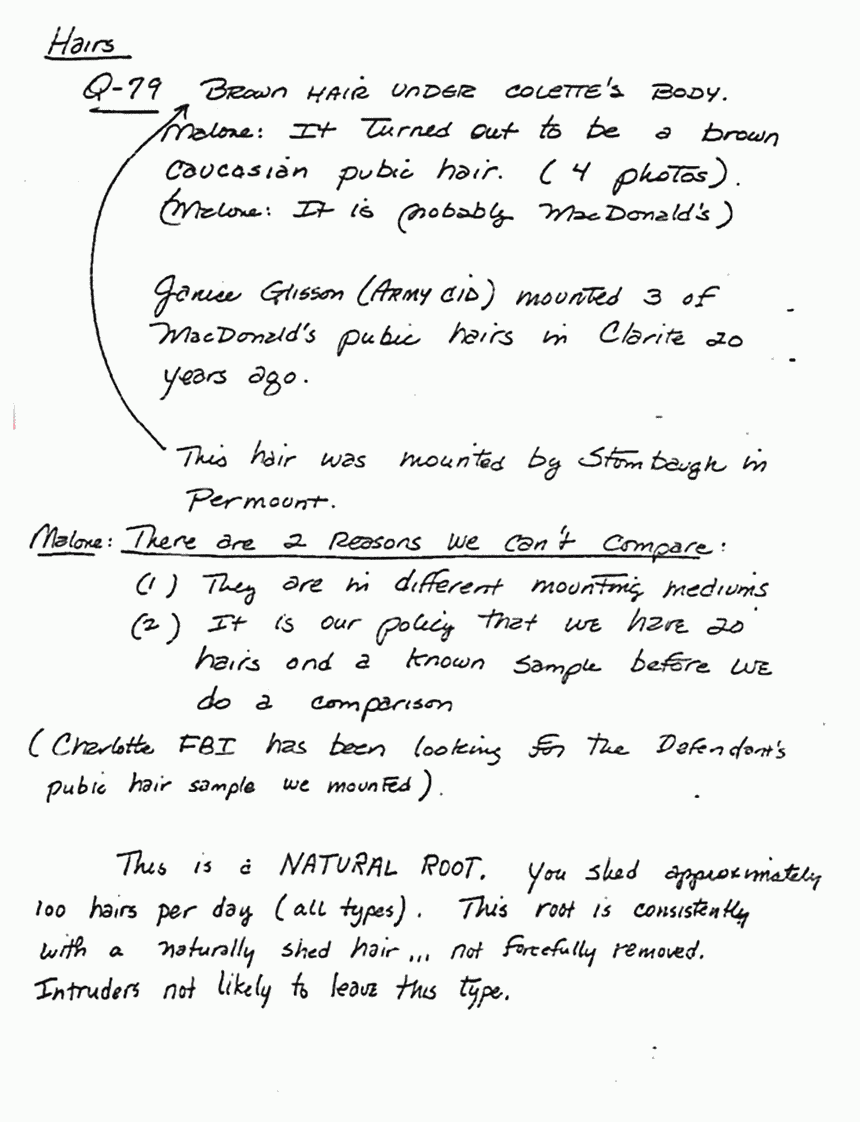 Hairs
Q-79 BROWN HAIR UNDER COLETTE'S BODY.
Malone: It turned out to be a brown
caucasian pubic hair. (4 photos).
(Malone: It is probably MacDonald's)
Janice Glisson (ARMY CID) mounted 3 of
MacDonald's pubic hairs in Clarite 20
years ago.
This hair was mounted by Stombaugh in
Permount.
Malone: There are 2 Reasons we can't compare:
(1) They are in different mounting mediums
(2) It is our policy that we have 20
hairs and a known sample before we
do a comparison
(Charlotte FBI has been looking for the Defendant's
pubic hair sample we mounted).
This is a NATURAL ROOT. You shed approximately
100 hairs per day (all types). This root is consistently
with a naturally shed hair... not forcefully removed.
Intruders not likely to leave this type.